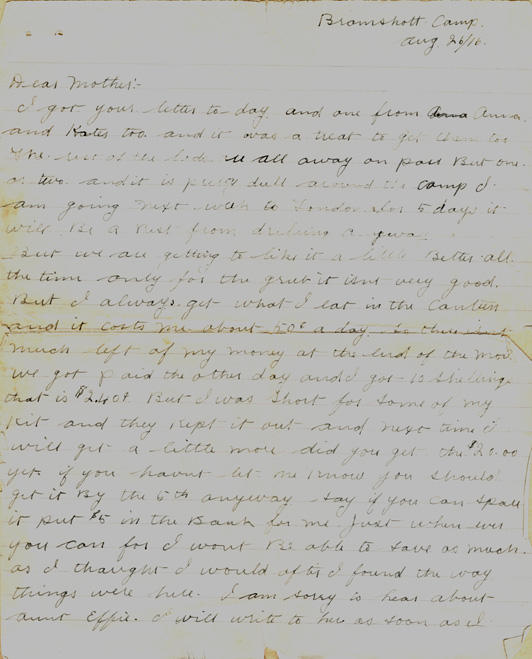 Bramshott Camp.
Aug 26/16.
Dear Mother:-
I got your letter to day and one from Anna
and Kates too and it was a treat to get them too
The rest of the lads all away on pass But one
or two and it is pretty dull around the camp I
am going next week to London for 5 days it
will Be a Rest from drilling anyway
But we are getting to like it a little Better all
the time only for the grub it isnt very good.
But I always get what I eat in the Canteen
and it costs me about 50¢ a day. So there isnt
much left of my money at the end of the
we got paid the other day and I got 10 shillings
that is $2.40¢ But I was short for some of my
Kit and they kept it out and next time I
will get a little more did you get the $20.00
yet if you havnt let me know you should
get it By the 5th anyway say if you can spare
it put $5 in the Bank for me Just when ever
you can for I wont Be able to save as much
as I thought I would after I found the way
things were here. I am sorry to hear about
aunt Effie. I will write to her as soon as I